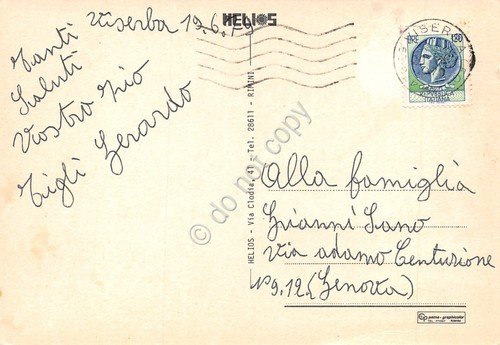 Viserba 19.6.79
Tanti
Saluti
Vostro Zio
Gigli Gerardo
HELIOS
HELIOS - Via Clodia, 41 - Tel. 28611 - RIMINI
VISERBA
130
Alla famiglia
Gianni Sano
via adamo Centurione
N° 9.12 (Genova)
do not copy